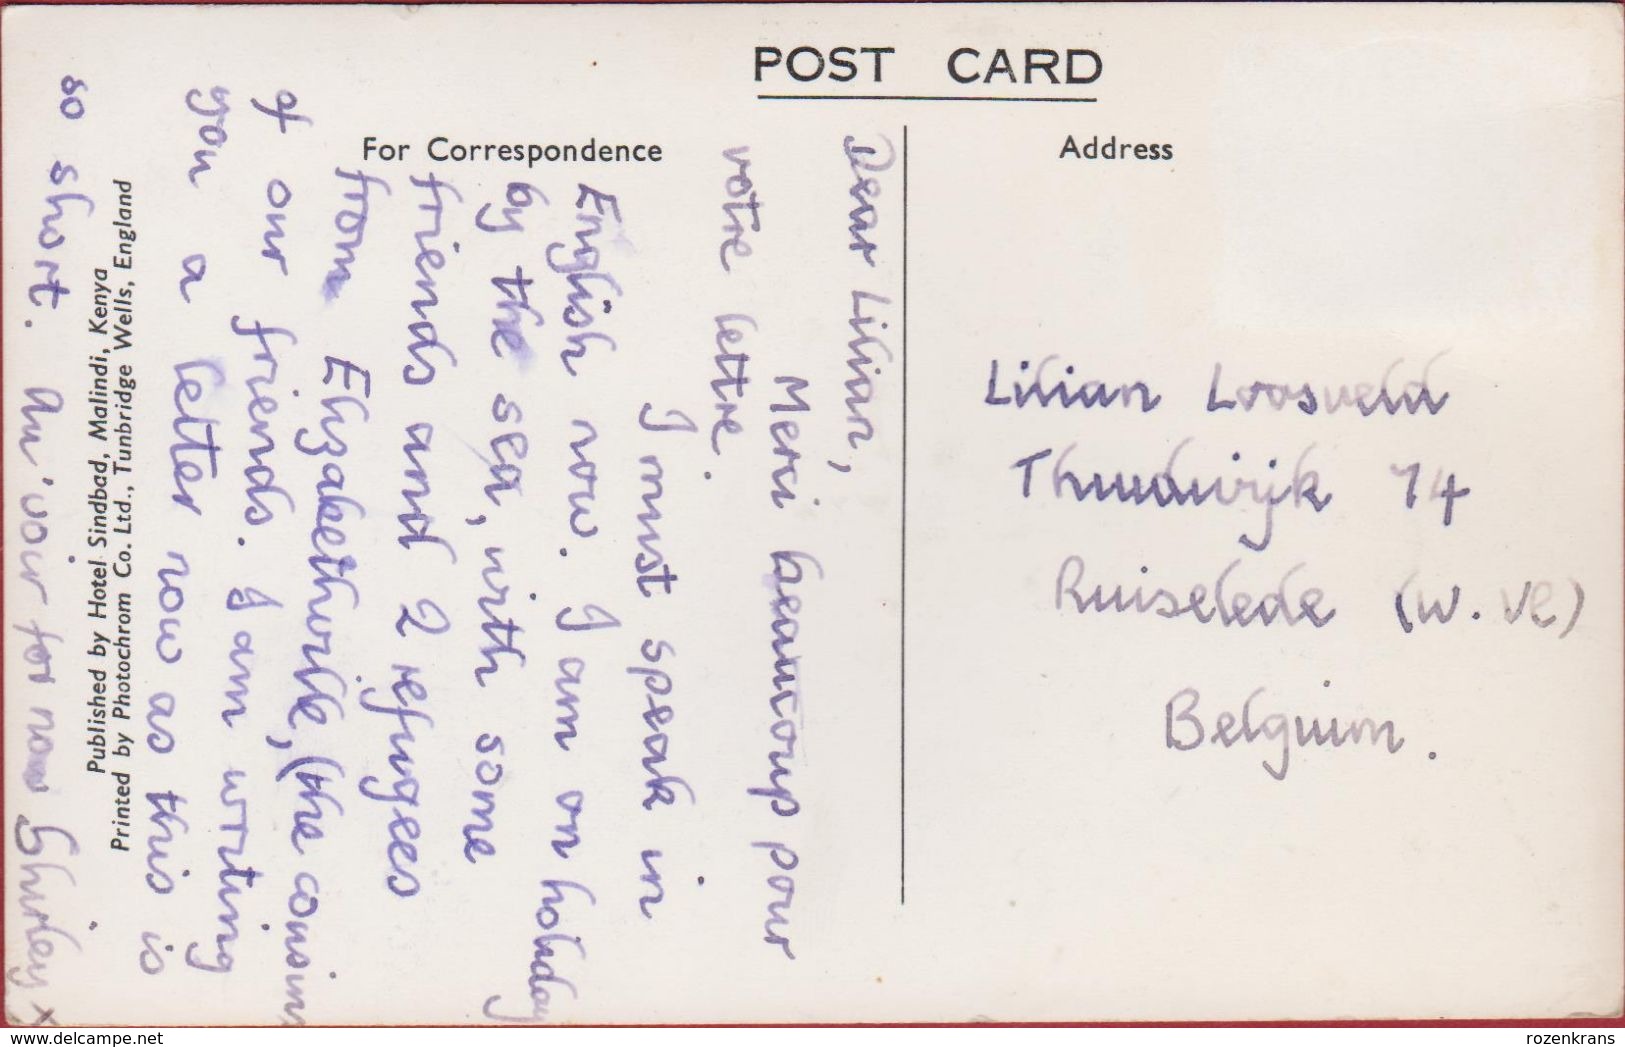 POST CARD
For Correspondence
Address
Dear Lilian,
Merci beaucoup pour
votre lettre.
I must speak in
English now. I am on holiday
by the sea, with some
friends and 2 refugees
from Elizabethville, (the cousins
of our friends. I am writing
you a letter now as this is
so short. Au 'voir for now Shirley x
Lilian Loosveld
74
Ruiselede (W. Vl)
Belgium.
Published by Hotel Sindbad, Malindi, Kenya
Printed by Photochrom Co. Ltd., Tunbridge Wells, England
delcampe.net
rozenkrans